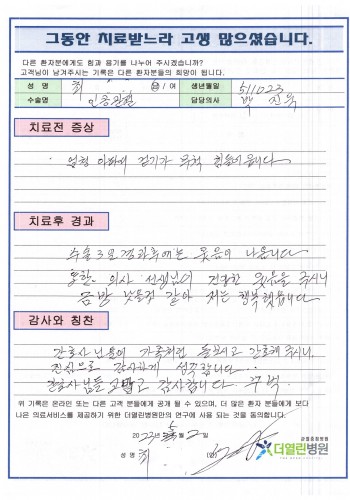 그동안 치료받느라 고생 많으셨습니다.
다른 환자분에게도 힘과 용기를 나누어 주시겠습니까?
고객님이 남겨주시는 기록은 다른 환자분들의 희망이 됩니다.
성 명 최 남 / 여 생년월일 511023
수술명 인공관절 담당의사 박진욱
치료전 증상
엄청 아파서 걷기가 무척 힘들었습니다
치료후 경과
수술 3일 경과후에는 웃음이 나옵니다
또한 의사 선생님이 건강한 웃음을 주시니
금방 낫을것 같아 저는 행복했습니다
감사와 칭찬
간호사님들이 가족처럼 돌보시고 간호해 주시니
진심으로 감사하게 생각합니다...
간호사님들 고맙고 감사합니다. 꾸벅
위 기록은 온라인 또는 다른 고객 분들에게 공개 될 수 있으며, 더 많은 환자 분들에게 보다
나은 의료서비스를 제공하기 위한 더열린병원만의 연구에 사용 되는 것을 동의합니다.
2023년 5월 2일
성 명 최 (인)
관절종합병원
더열린병원